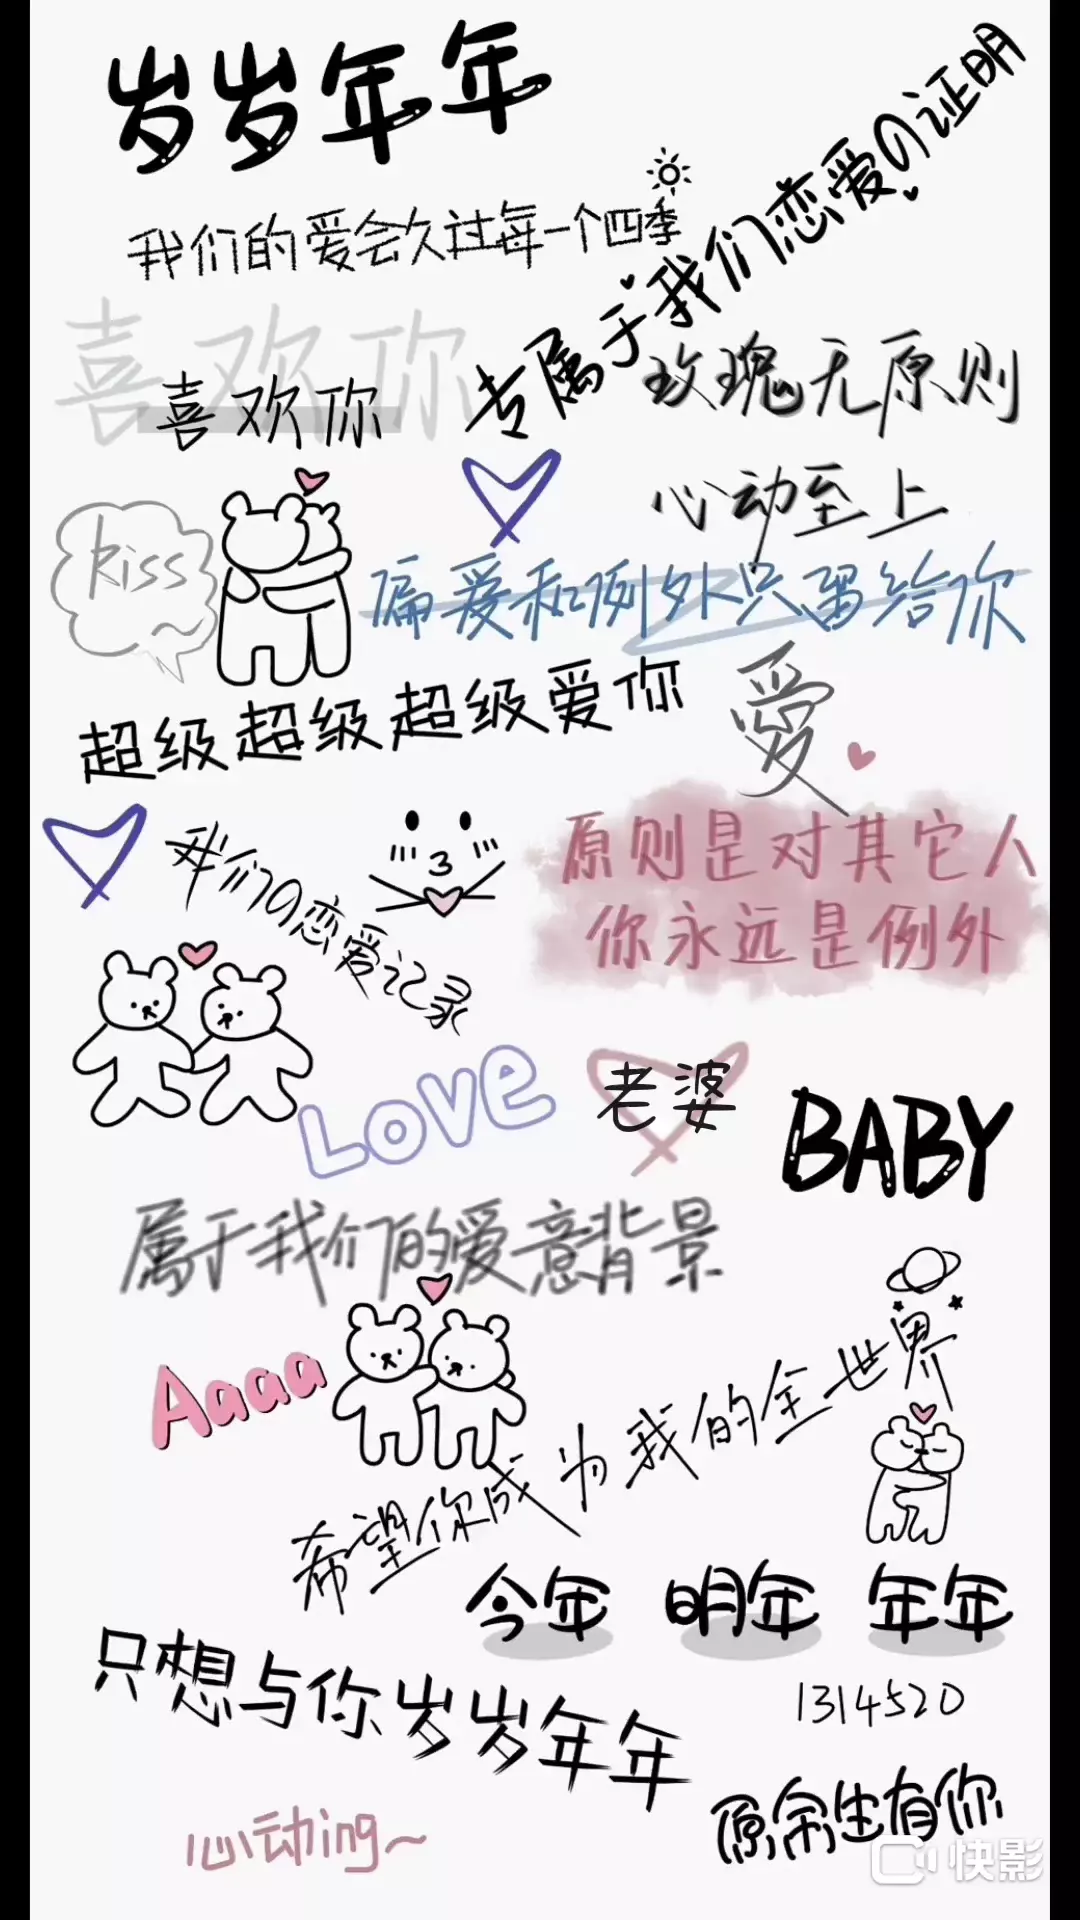 岁岁年年
专属于我们恋爱の证明
我们的爱会久过每一个四季
喜欢你
喜欢你
玫瑰无原则
心动至上
kiss
偏爱和例外只留给你
超级超级超级爱你
愛
原则是对其它人
你永远是例外
我们の恋爱记录
3
LOVE
老婆
BABY
属于我们的爱意背景
Aaaa
希望你成为我的全世界
今年 明年 年年
只想与你岁岁年年
1314520
原余生有你
心动ing~
快影